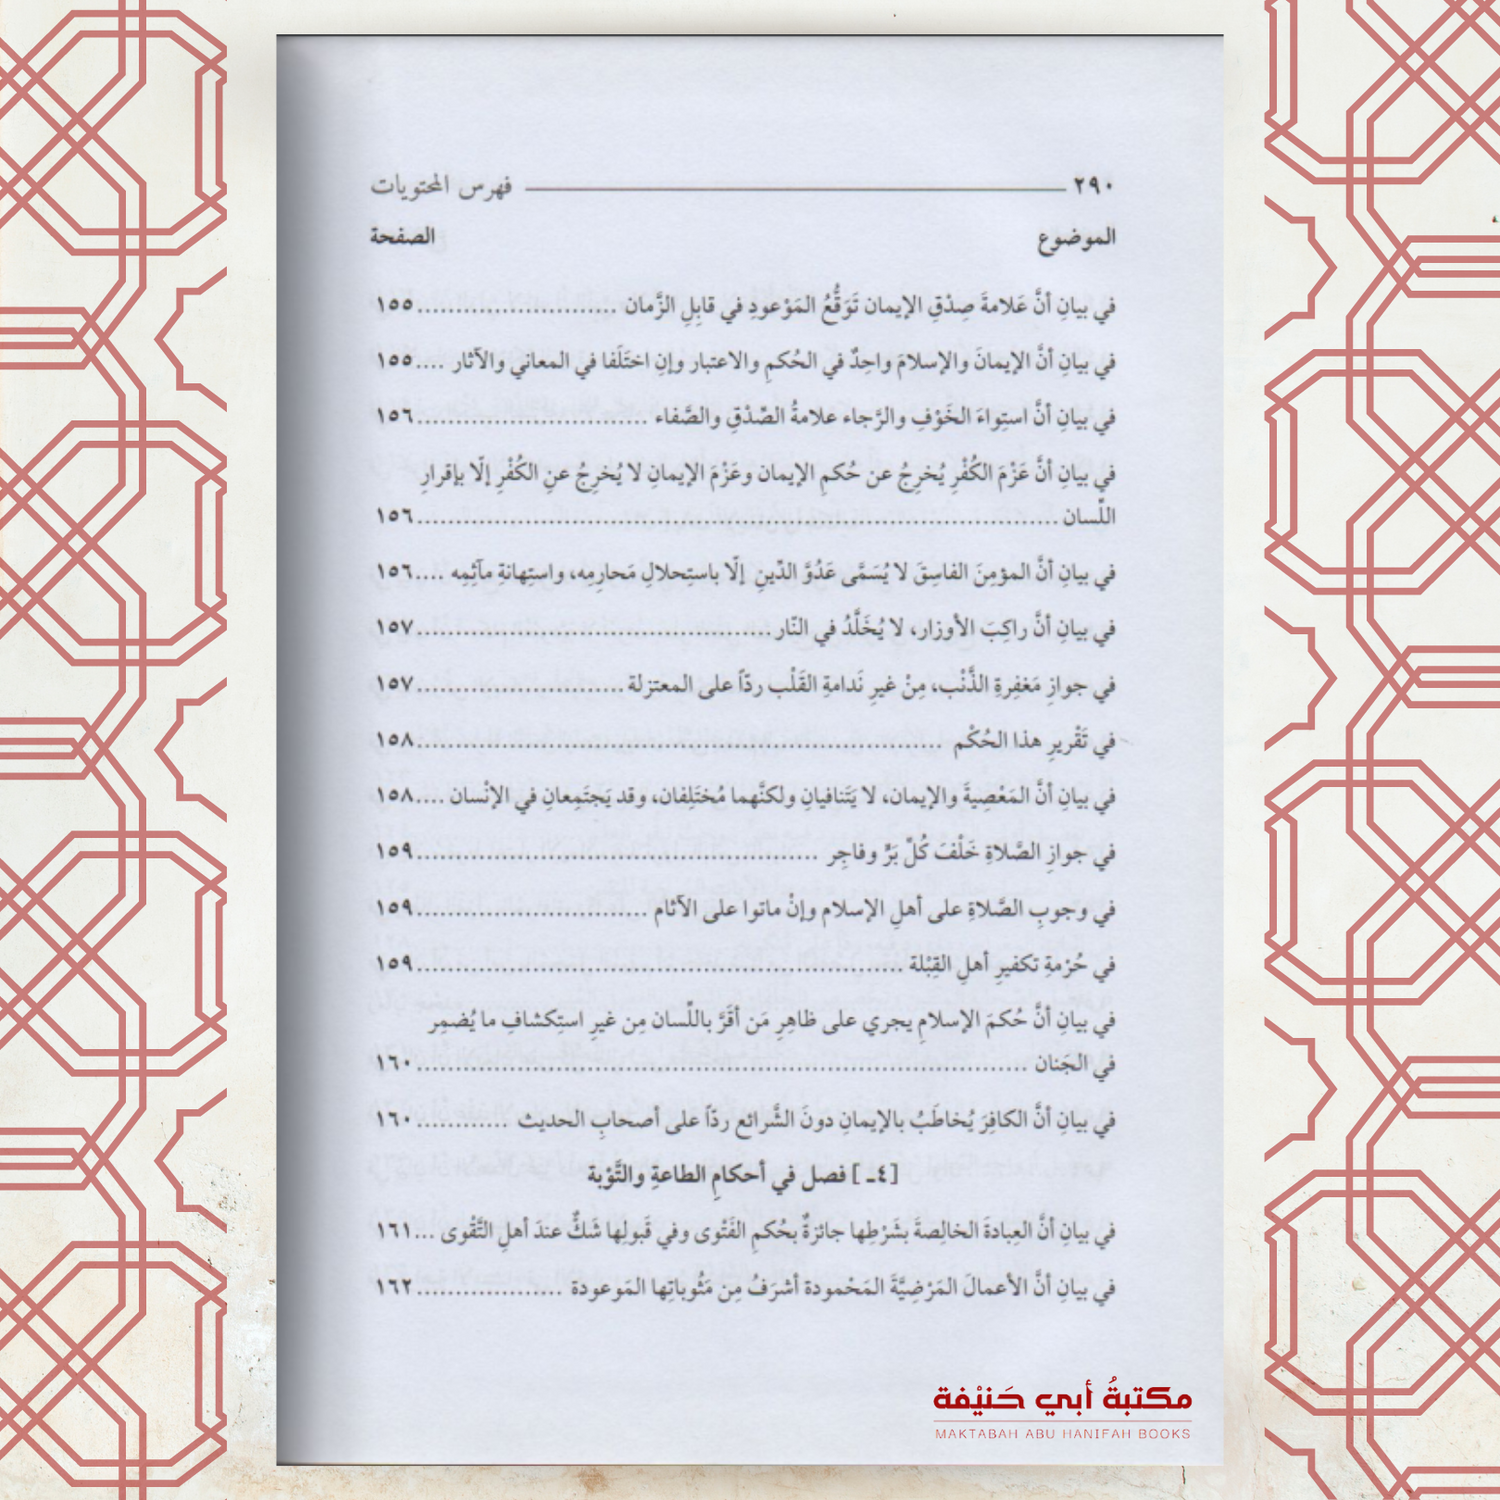 ٢٩٠ فهرس المحتويات
الموضوع الصفحة
في بيانِ أنَّ عَلامةَ صِدْقِ الإيمان تَوَقُّعُ المَوْعودِ في قابِلِ الزَّمان ..........................١٥٥
في بيانِ أنَّ الإيمانَ والإسلامَ واحِدٌ في الحُكمِ والاعتبار وإنِ اختَلَفا في المعاني والآثار ....١٥٥
في بيانِ أنَّ استِواءَ الخَوْفِ والرَّجاء علامةُ الصِّدْقِ والصَّفاء ..............................١٥٦
في بيانِ أنَّ عَزْمَ الكُفْرِ يُخرِجُ عن حُكمِ الإيمان وعَزْمَ الإيمانِ لا يُخرِجُ عنِ الكُفْرِ إلّا بإقرارِ
اللِّسان ...................................................................................١٥٦
في بيانِ أنَّ المؤمِنَ الفاسِقَ لا يُسَمَّى عَدُوَّ الدِّينِ إلّا باستِحلالِ مَحارِمِه، واستِهانةِ مآثِمِه ....١٥٦
في بيانِ أنَّ راكِبَ الأوزار، لا يُخَلَّدُ في النّار ..............................................١٥٧
في جوازِ مَغفِرةِ الذَّنْب، مِنْ غيرِ نَدامةِ القَلْب ردّاً على المعتزلة ...........................١٥٧
في تَقْريرِ هذا الحُكْم ....................................................................١٥٨
في بيانِ أنَّ المَعْصِيةَ والإيمان، لا يَتَنافيانِ ولكنَّهما مُختَلِفان، وقد يَجتَمِعانِ في الإنْسان ....١٥٨
في جوازِ الصَّلاةِ خَلْفَ كُلِّ بَرٍّ وفاجِر ....................................................١٥٩
في وجوبِ الصَّلاةِ على أهلِ الإسلام وإنْ ماتوا على الآثام ..............................١٥٩
في حُرْمةِ تكفيرِ أهلِ القِبْلة ...............................................................١٥٩
في بيانِ أنَّ حُكمَ الإسلامِ يجري على ظاهِرِ مَن أقَرَّ باللِّسان مِن غيرِ استِكشافِ ما يُضمِر
في الجَنان ...............................................................................١٦٠
في بيانِ أنَّ الكافِرَ يُخاطَبُ بالإيمانِ دونَ الشَّرائع ردّاً على أصحابِ الحديث ............١٦٠
[٤ـ] فصل في أحكامِ الطاعةِ والتَّوْبة
في بيانِ أنَّ العِبادةَ الخالِصةَ بشَرْطِها جائزةٌ بحُكمِ الفَتْوى وفي قَبولِها شَكٌّ عندَ أهلِ التَّقْوى ...١٦١
في بيانِ أنَّ الأعمالَ المَرْضِيَّةَ المَحْمودة أشرَفُ مِن مَثُوباتِها المَوعودة ...................١٦٢
مكتبةُ أبي حَنيْفة
MAKTABAH ABU HANIFAH BOOKS